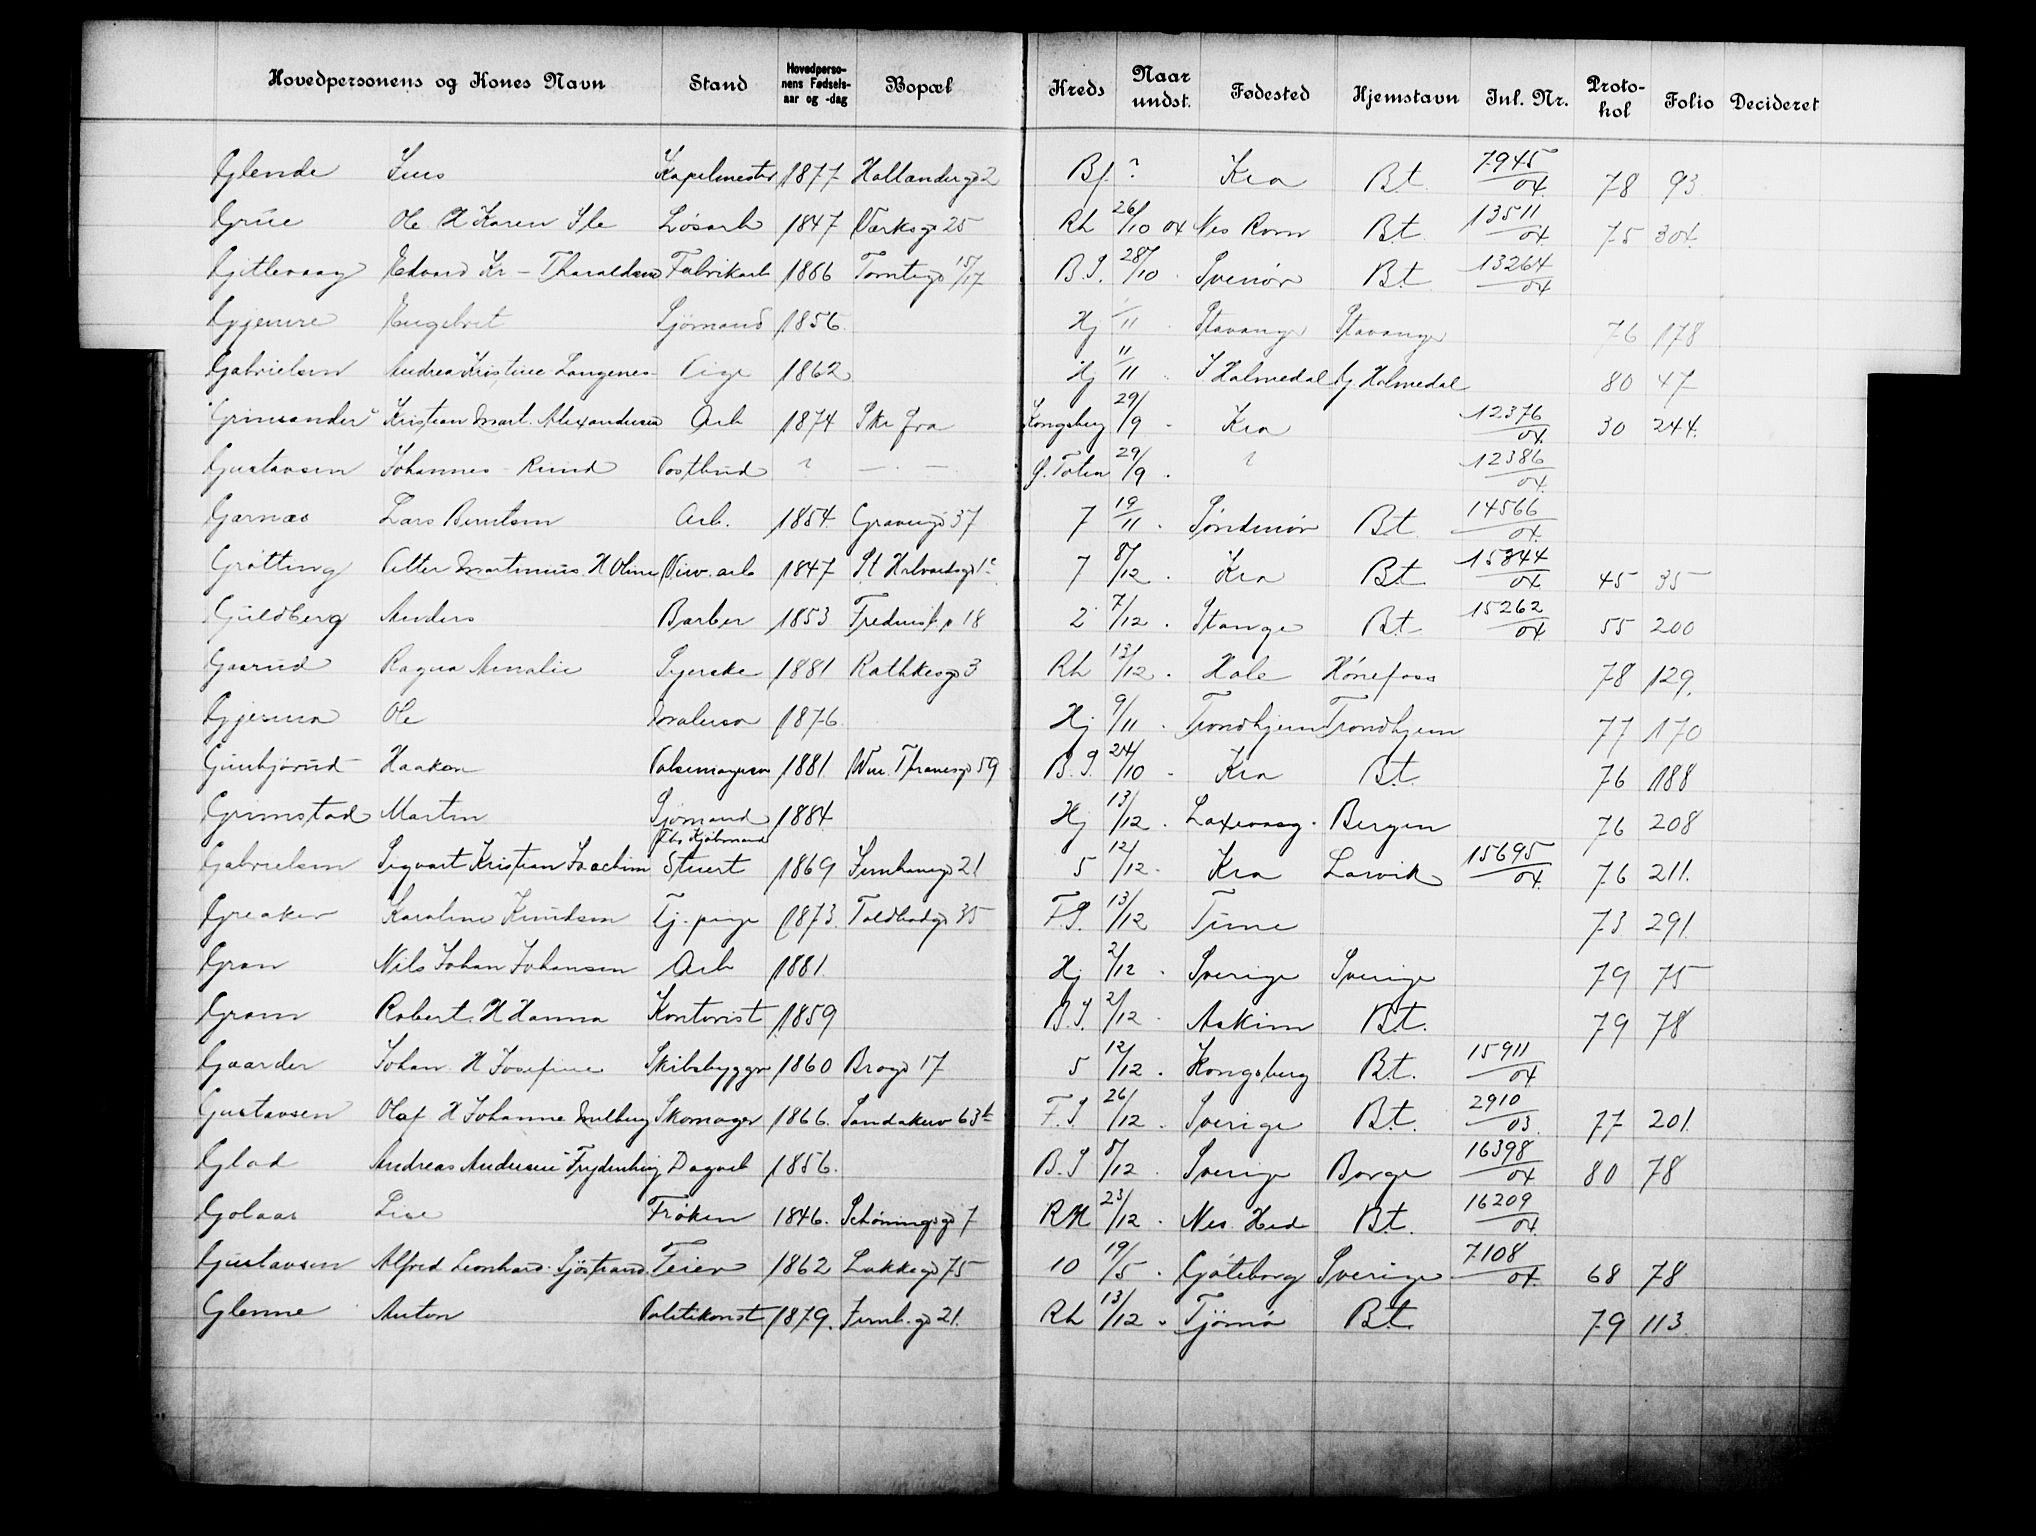 Hovedpersonens og Kones Navn Stand Hovedperso-nens Fødsels-aar og -dag Bopæl Kreds Naar undst. Fødested Hjemstavn Inl. Nr. Proto-kol Folio Decideret
Glende Jens Kapelmester 1877 Hollanderg 2 Bf. ? Kra Bt. 7945/04 78 93
Grue Ole H Karen Ile Løsarb 1847 Værksg 25 Rh 26/10 04 Nes Rom Bt. 13511/04 75 304.
Gitlevaag Edvard Kr - Tharaldsen Fabrikarb 1866 Tomteg 15/17 B.S. 28/10 - Svenør Bt 13264/04
Gjemre Engebret Sjømand 1856 Hj 1/11 - Stavanger Stavanger 76 178
Gabrielsen Andrea Kristine Langenes Pige 1862 Hj 11/11 - Y Holmedal Y Holmedal 80 47
"Grinsander" Kristian Mart. Alexandersen Arb 1874 Skr fra Kongsberg 29/9 - Kra 12376/04 30 244.
Gustavsen Johannes - Rund Postbud ? — . — Ø. Toten 29/9 . ? 12386/04
Garnæs Lars Berntsen Arb. 1854 Grønneg 37 7 19/11 . Søndmør Bt 14566/04
Grøtting Petter Martinius H Oline Div. arb 1847 St Halvardsg 1c 7 8/12 . Kra Bt 15344/04 45 35
Guldberg Anders Barber 1853 Fredensb v 18 2 7/12 . Stange Bt. 15262/04 55 200
Gaarud Ragna Amalie Syerske 1881 Rathkesg 3 Rh 13/12 . Hole Hønefoss 78 129.
Gjesma Ole Malersv 1876 Hj 9/11 . Trondhjem Trondhjem 77 170
Gunbjørud Haakon Pølsemagersv 1881 Wm. Thranesg 59 B.S. 24/10 - Kra Bt. 76 188
Grimstad Martin Sjømand 1884 Hj 13/12 . Laxevaag . Bergen 76 208
Gabrielsen Sigvart Kristian Joachim fhv Kjøbmand Stuert 1869 Jernbaneg 21 5 12/12 . Kra Larvik 15695/04 76 211.
Greaker Karoline Knudsen Tj. pige 1873. Toldbodg 35 F.S. 13/12 Tune 73 291.
Gran Nils Johan Johansen Arb 1881 Hj 2/12 . Sverige Sverige 79 75
Gram Robert. H Hanna Kontorist 1859 B.S. 2/12 . Askim Bt. 79 78
Gaarder Johan. H Josefine Skibsbygger 1860 Brog 17 5 12/12 . Kongsberg Bt. 15911/04
Gustavsen Olaf H Johanne Mulberg Skomager 1866. Sandakerv 63b F.S. 26/12 . Sverige Bt. 2910/03 77 201.
Glad Andreas Andersen "Frydenberg" Dagarb 1856. B.S 8/12 . Sverige Borge 16398/04 80 78
Golaas Lise Frøken 1846. Schøningsg 7 RH 23/12 . Nes. Hed Bt. 16209/04
Gustavsen Alfred Leonhard. Sjøstrand. Feier 1862 Lakkeg 75 10 19/5 . Gøteborg Sverige 7108/04 68 78
Glenne Anton Politikonst 1879. Jernb. g 21. Rh 13/12 . Tjømø Bt. 79 113.